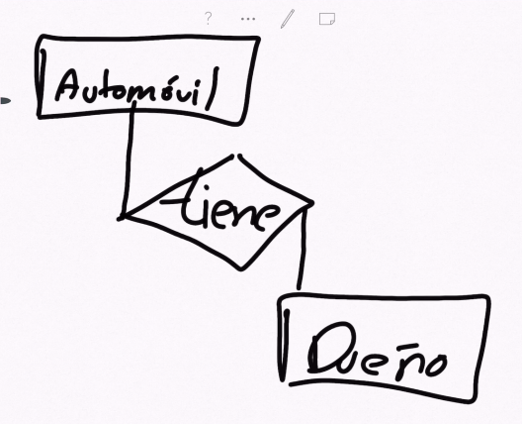 Automóvil
tiene
Dueño